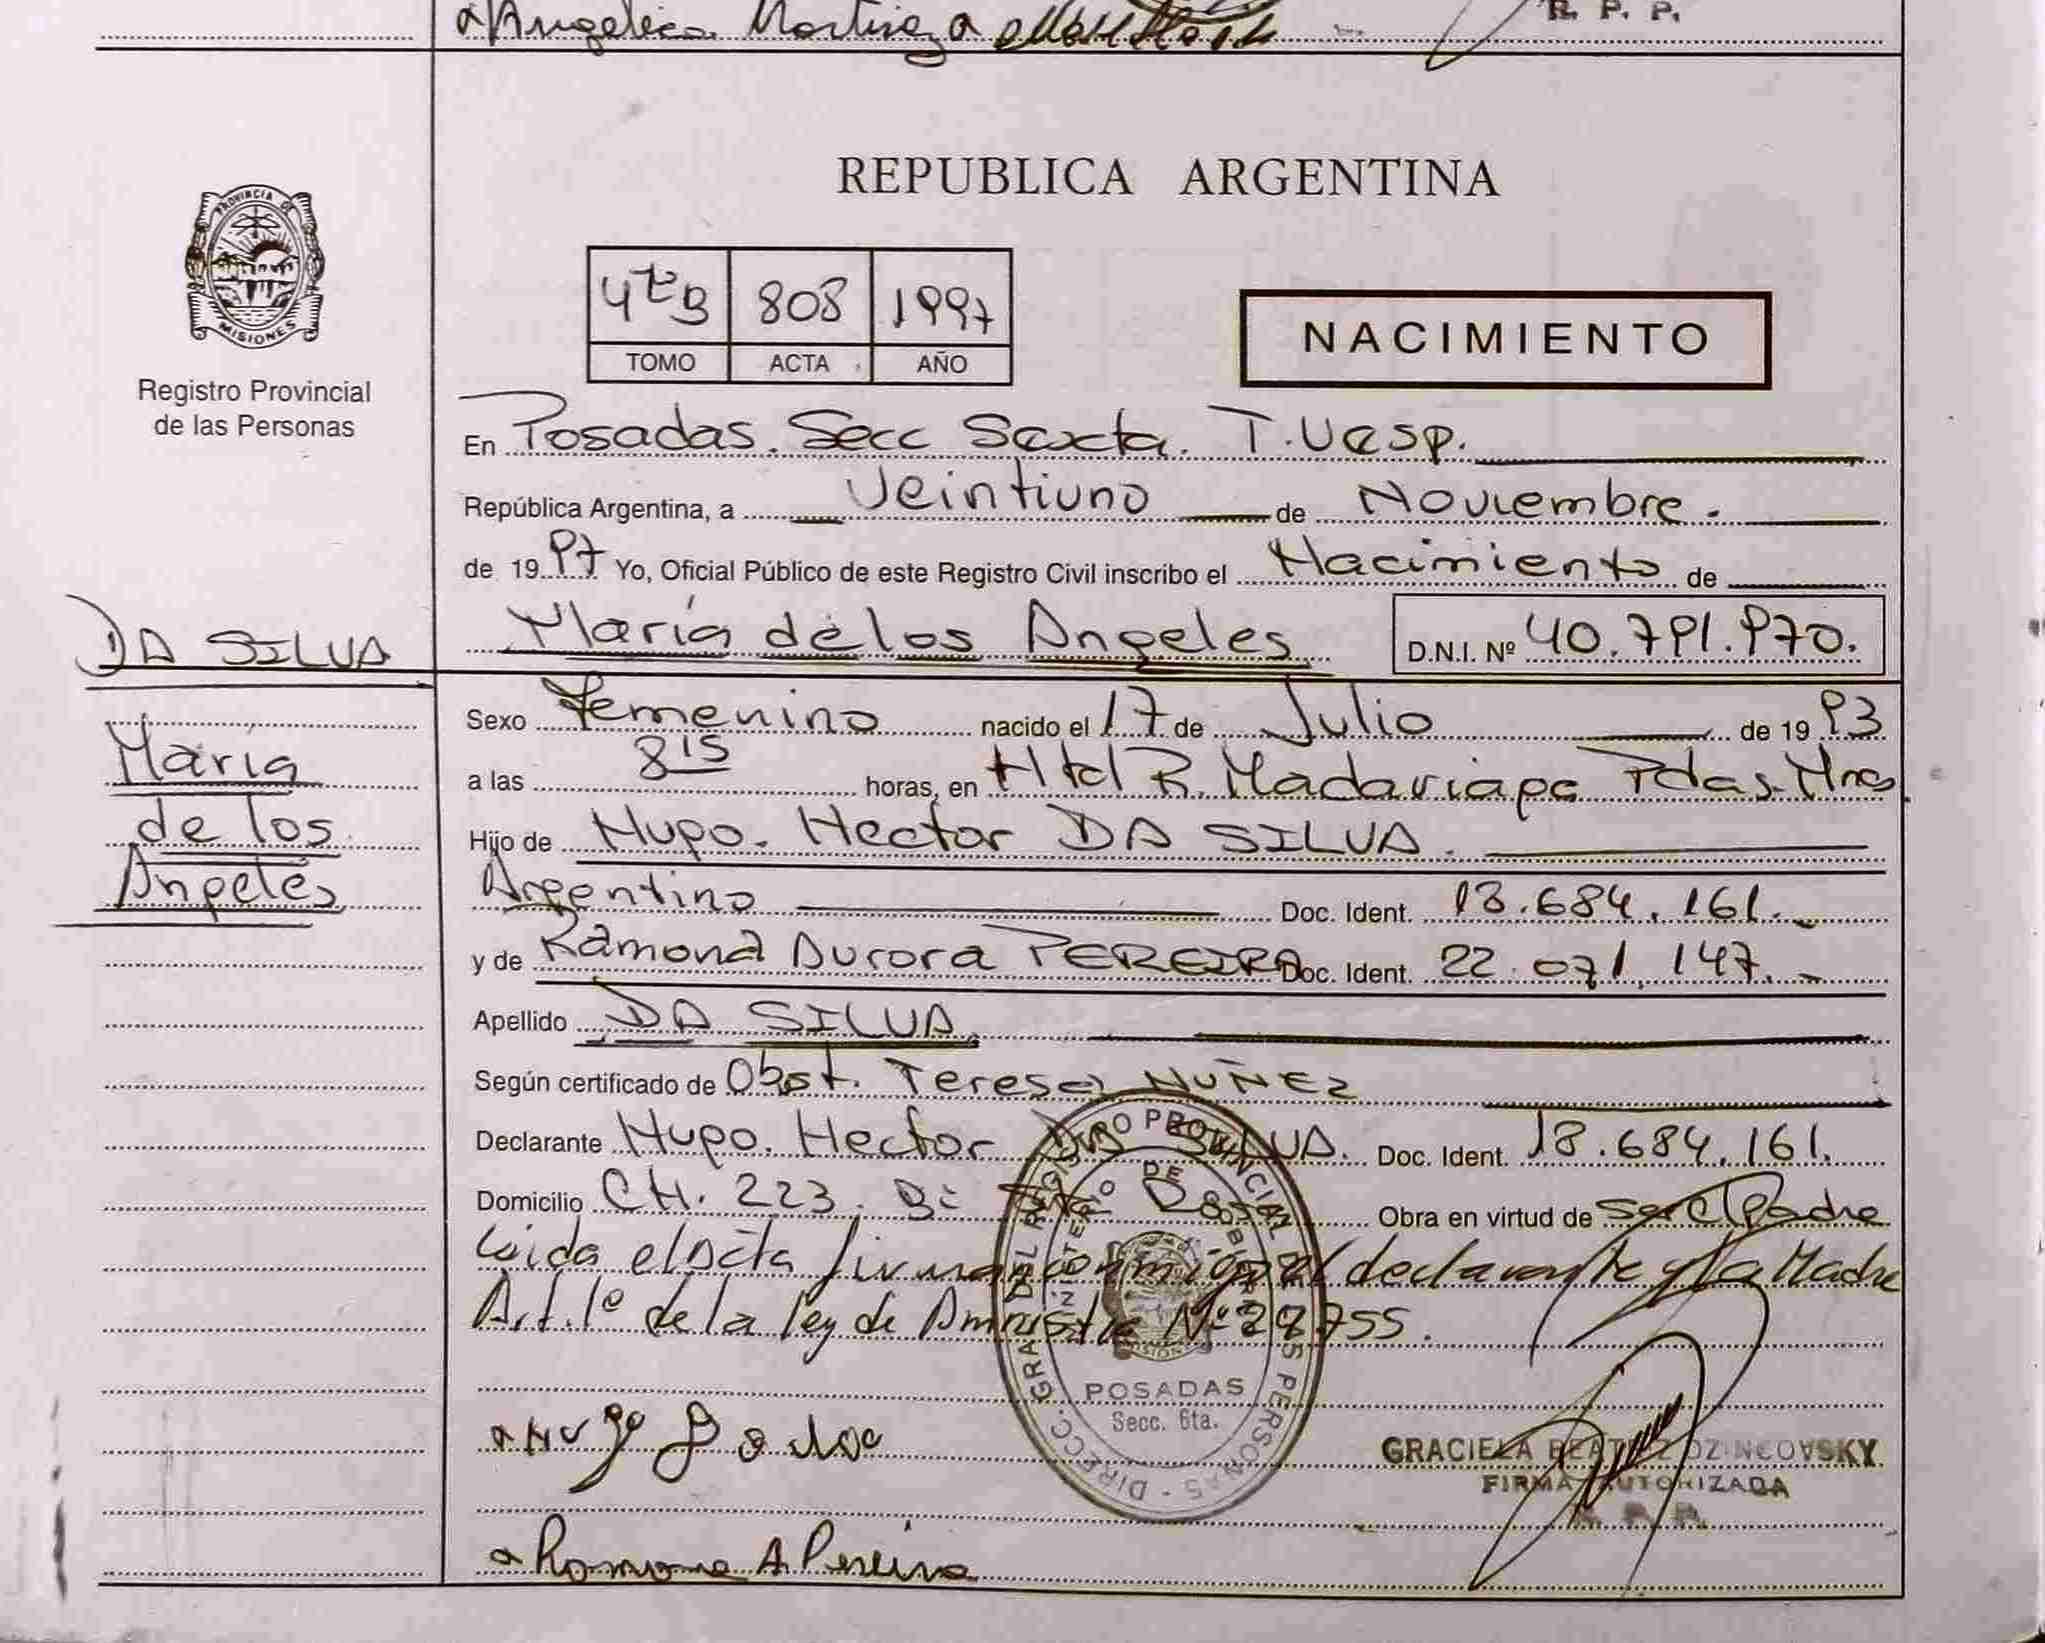 Angelica Martinez
R. P. P.
REPUBLICA ARGENTINA
PROVINCIA DE
MISIONES
Registro Provincial
de las Personas
808 1997
TOMO ACTA AÑO
NACIMIENTO
En Posadas. Secc Sexta. T. Vesp.
República Argentina, a Veintiuno de Noviembre.
de 1997 Yo, Oficial Público de este Registro Civil inscribo el Nacimiento de
DA SILVA
María de los Angeles D.N.I. Nº 40.791.970.
Sexo Femenino nacido el 17 de Julio de 1993
María
de los
Angeles
a las 8 15 horas, en Htal R. Madariaga Pdas. Mnes
Hijo de Hugo. Hector DA SILVA.
Argentino Doc. Ident. 18.684.161.
y de Ramona Aurora PEREIRA Doc. Ident. 22.071.147.
Apellido DA SILVA
Según certificado de Obst. Teresa NUÑEZ
Declarante Hugo. Hector DA SILVA. Doc. Ident. 18.684.161.
Domicilio CH. 223. Obra en virtud de ser el Padre
Leida el Acta firman conmigo el declarante y la Madre
Art. 1º de la ley de Amnistia Nº
POSADAS
Secc. 6ta.
DIRECC. GRAL. DEL REGISTRO PROVINCIAL DE LAS PERSONAS
MINISTERIO DE
GRACIELA BEATRIZ
FIRMA AUTORIZADA
R. P. P.
Ramona A Pereira